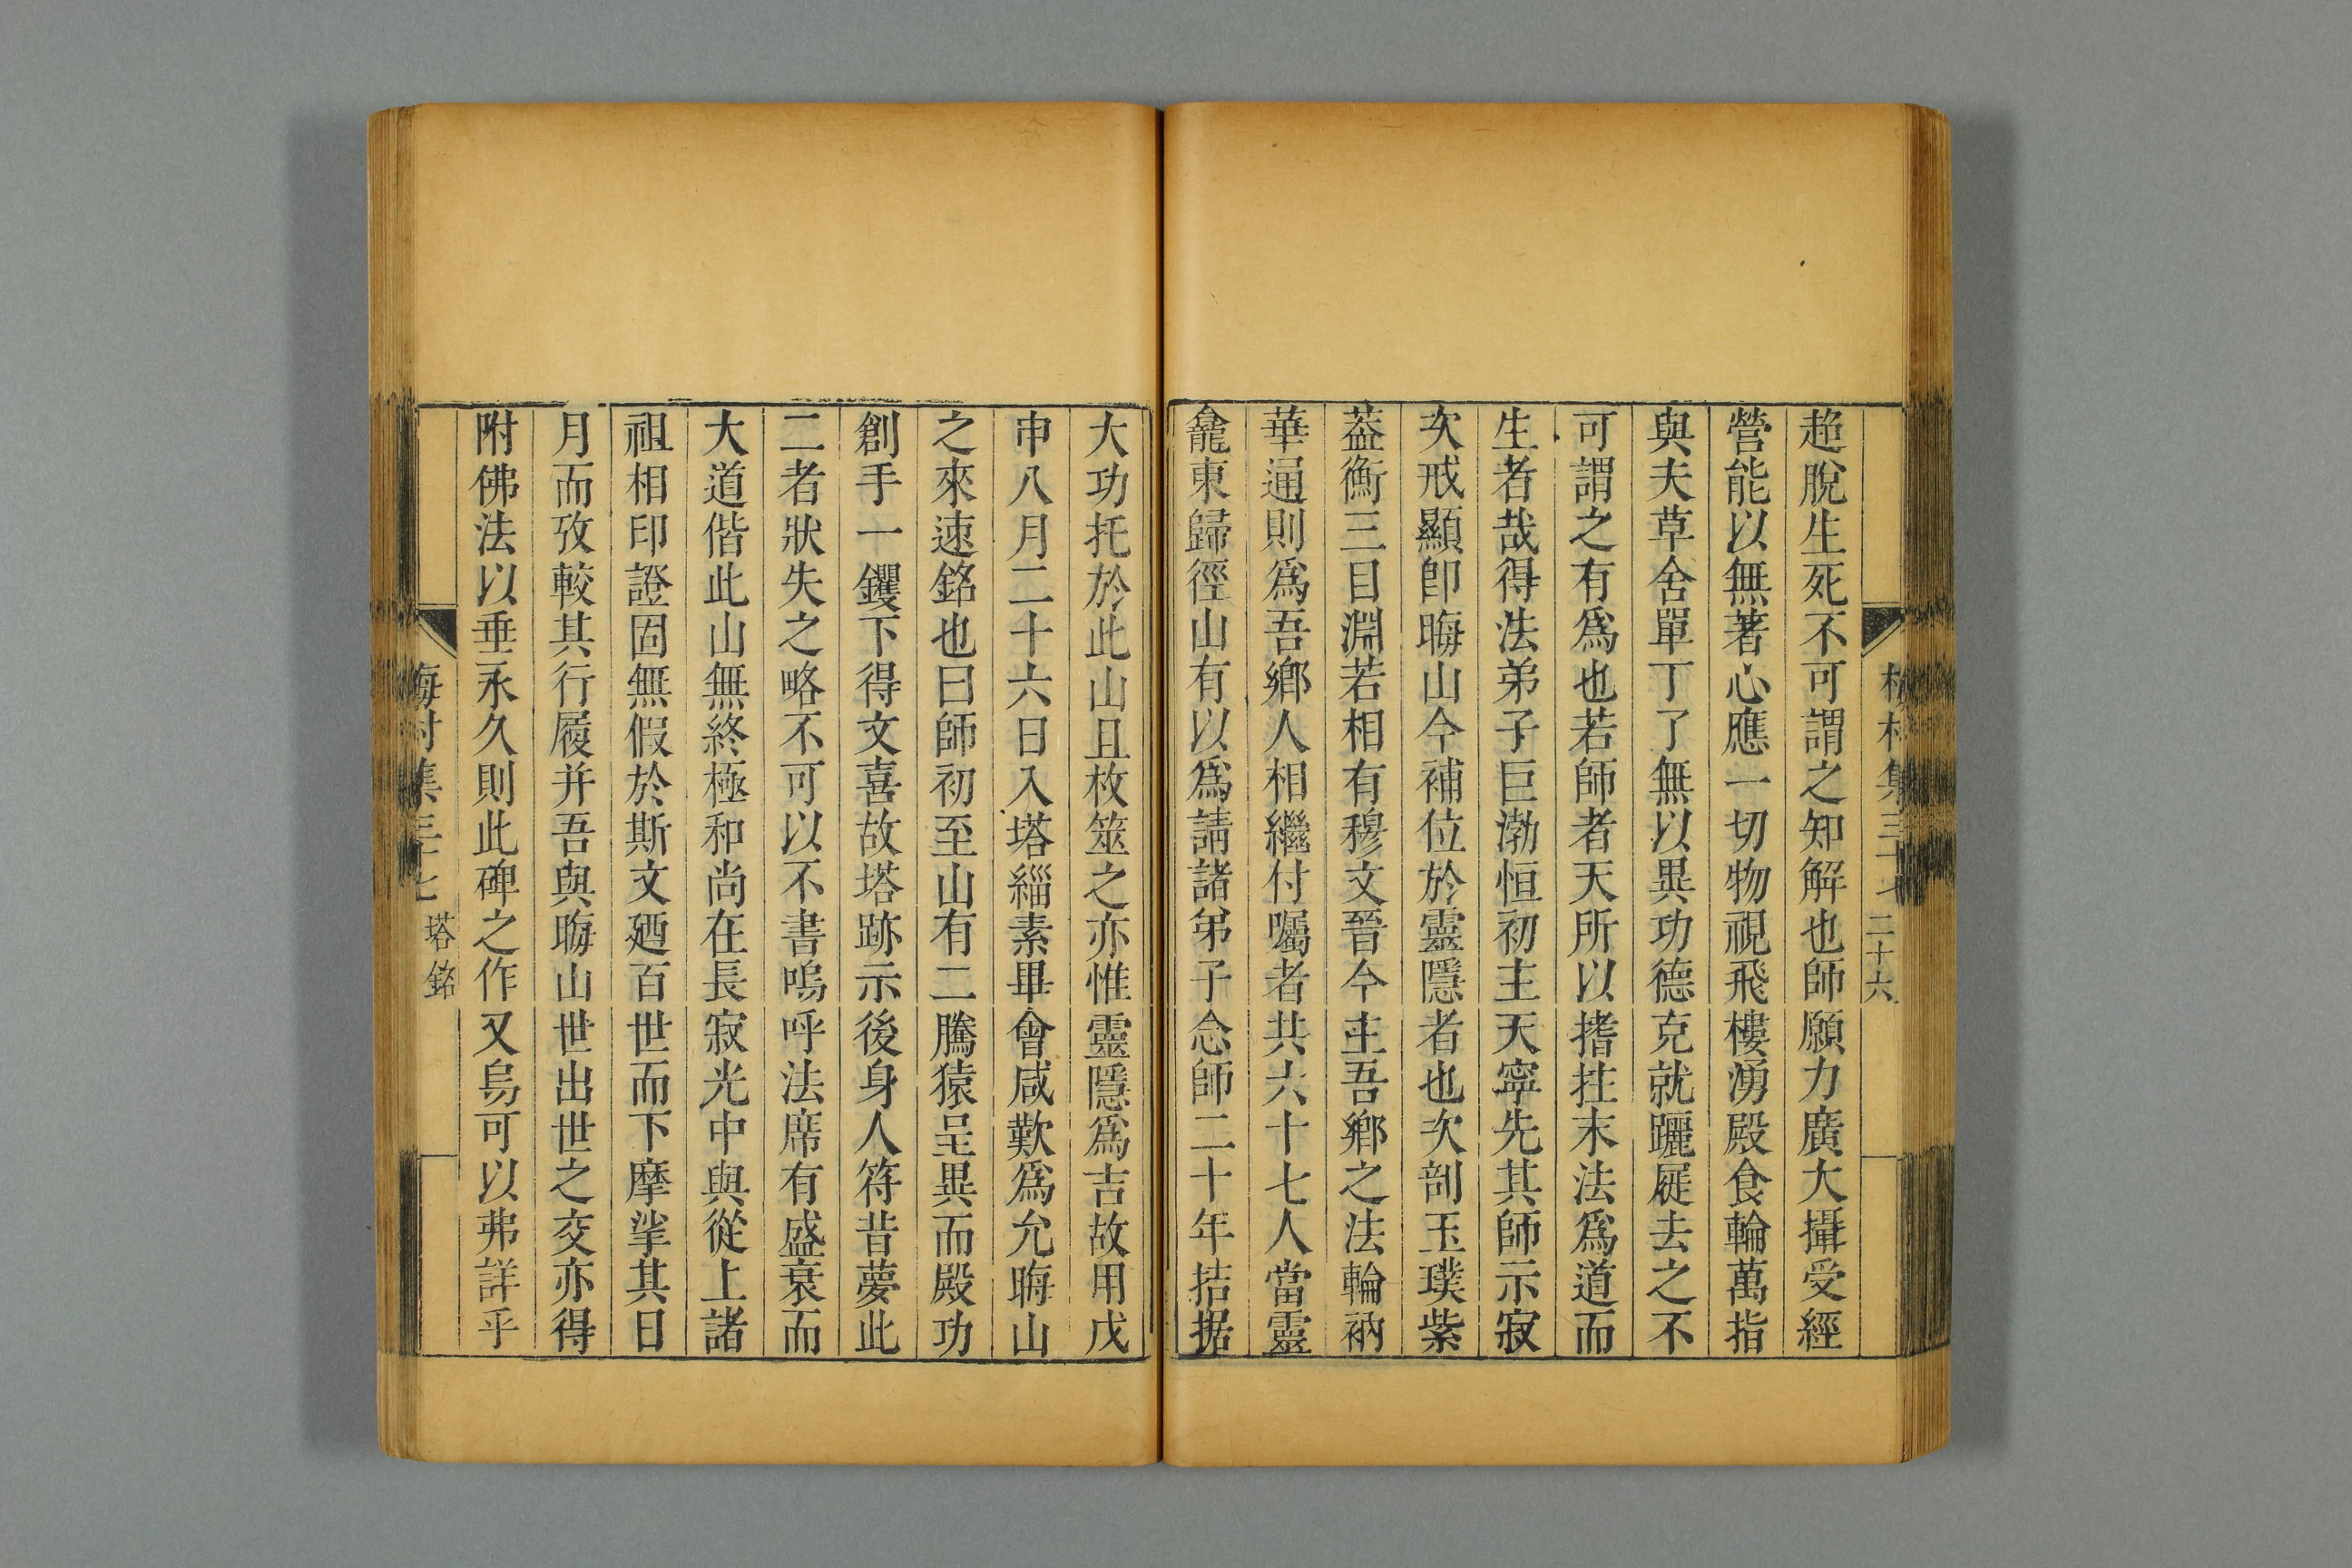 梅村集三十七 二十六
超脫生死不可謂之知解也師願力廣大攝受經
營能以無著心應一切物視飛樓湧殿食輪萬指
與夫草舍單丁了無以異功德克就躧屣去之不
可謂之有爲也若師者天所以搘拄末法爲道而
生者哉得法弟子巨渤恒初主天寧先其師示寂
次戒顯卽晦山今補位於靈隱者也次剖玉璞紫
葢衡三目淵若相有穆文晉今主吾鄉之法輪衲
華通則爲吾鄉人相繼付囑者共六十七人當靈
龕東歸徑山有以爲請諸弟子念師二十年拮据
大功托於此山且枚筮之亦惟靈隱爲吉故用戊
申八月二十六日入塔緇素畢會咸歎爲允晦山
之來速銘也曰師初至山有二騰猿呈異而殿功
創手一钁下得文喜故塔跡示後身人符昔夢此
二者狀失之略不可以不書嗚呼法席有盛衰而
大道偕此山無終極和尚在長寂光中與從上諸
祖相印證固無假於斯文廼百世而下摩挲其日
月而攷較其行履并吾與晦山世出世之交亦得
附佛法以垂永久則此碑之作又烏可以弗詳乎
梅村集三十七 塔銘